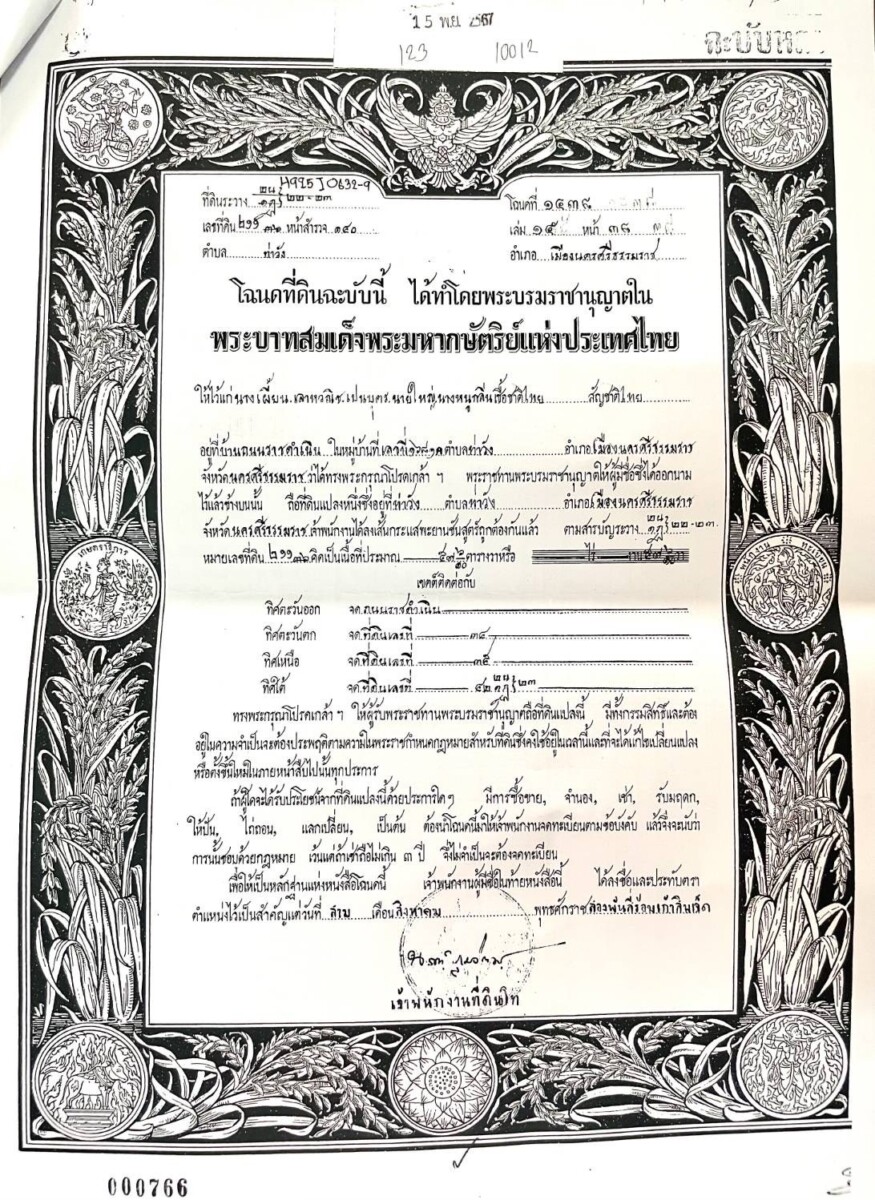 15 พ.ย. 2567
123 10012
ฉะบับหลว
H985J0632-9
ที่ดินระวาง ๒๒-๒๓
โฉนดที่ ๑๕๓๘
เลขที่ดิน ๒๑๑ หน้าสำรวจ ๑๔๐
เล่ม ๑๕ หน้า ๓๘
ตำบล ท่าวัง
อำเภอ เมืองนครศรีธรรมราช
โฉนดที่ดินฉะบับนี้ ได้ทำโดยพระบรมราชานุญาตใน
พระบาทสมเด็จพระมหากษัตริย์แห่งประเทศไทย
ให้ไว้แก่ นางเผี้ยน เป็นบุตร นายใหญ่ นางหนูกลิ่น เชื้อชาติไทย สัญชาติไทย
อยู่ที่บ้านถนนราชดำเนิน ในหมู่บ้านที่ ตำบลท่าวัง อำเภอเมืองนครศรีธรรมราช
จังหวัดนครศรีธรรมราช ว่าได้ทรงพระกรุณาโปรดเกล้า ฯ พระราชทานพระบรมราชานุญาตให้ผู้มีชื่อซึ่งได้ออกนาม
ไว้แล้วข้างบนนั้น ถือที่ดินแปลงหนึ่งซึ่งอยู่ที่ท่าวัง ตำบลท่าวัง อำเภอเมืองนครศรีธรรมราช
จังหวัดนครศรีธรรมราช เจ้าพนักงานได้ลงเส้นกระแสพะยานชันสูตรถูกต้องกันแล้ว ตามสารบัญระวาง ๒๒-๒๓
หมายเลขที่ดิน ๒๑๑ คิดเป็นเนื้อที่ประมาณ ตารางวาหรือ ไร่ งาน วา
เขตต์ติดต่อกับ
ทิศตะวันออก จด ถนนราชดำเนิน
ทิศตะวันตก จด ที่ดินเลขที่ ๓๔
ทิศเหนือ จด ที่ดินเลขที่ ๓๕
ทิศใต้ จด ที่ดินเลขที่ ๔๒ ๒๓
ทรงพระกรุณาโปรดเกล้า ฯ ให้ผู้รับพระราชทานพระบรมราชานุญาตถือที่ดินแปลงนี้ มีทั้งกรรมสิทธิ์และต้อง
อยู่ในความจำเป็นจะต้องประพฤติตามความในพระราชกำหนดกฎหมายสำหรับที่ดินซึ่งคงใช้อยู่ในเวลานี้และที่จะได้แก้ไขเปลี่ยนแปลง
หรือตั้งขึ้นใหม่ในภายหน้าสืบไปนั้นทุกประการ
ถ้าผู้ใดจะได้รับประโยชน์จากที่ดินแปลงนี้ด้วยประการใดๆ มีการซื้อขาย, จำนอง, เช่า, รับมฤดก,
ให้ปัน, ไถ่ถอน, แลกเปลี่ยน, เป็นต้น ต้องนำโฉนดนี้มาให้เจ้าพนักงานจดทะเบียนตามข้อบังคับ แล้วจึ่งจะนับว่า
การนั้นชอบด้วยกฎหมาย เว้นแต่ถ้าเช่าถือไม่เกิน ๓ ปี จึ่งไม่จำเป็นจะต้องจดทะเบียน
เพื่อให้เป็นหลักฐานแห่งหนังสือโฉนดนี้ เจ้าพนักงานผู้มีชื่อในท้ายหนังสือนี้ ได้ลงชื่อและประทับตรา
ตำแหน่งไว้เป็นสำคัญแต่วันที่ สาม เดือน สิงหาคม พุทธศักราช สองพันสี่ร้อยเก้าสิบเอ็ด
เจ้าพนักงานที่ดินโท
เกษตราธิการ
000766